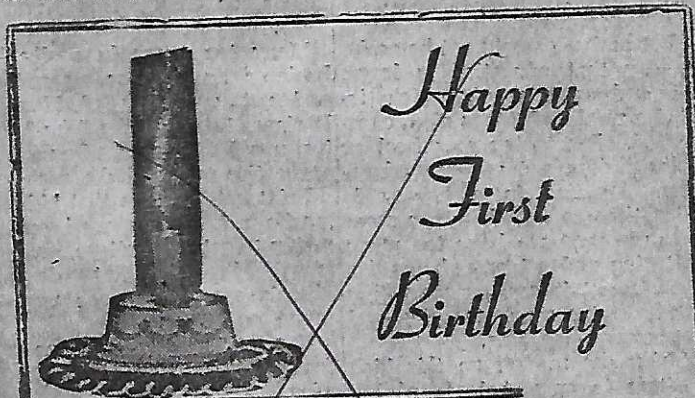 Happy
First
Birthday